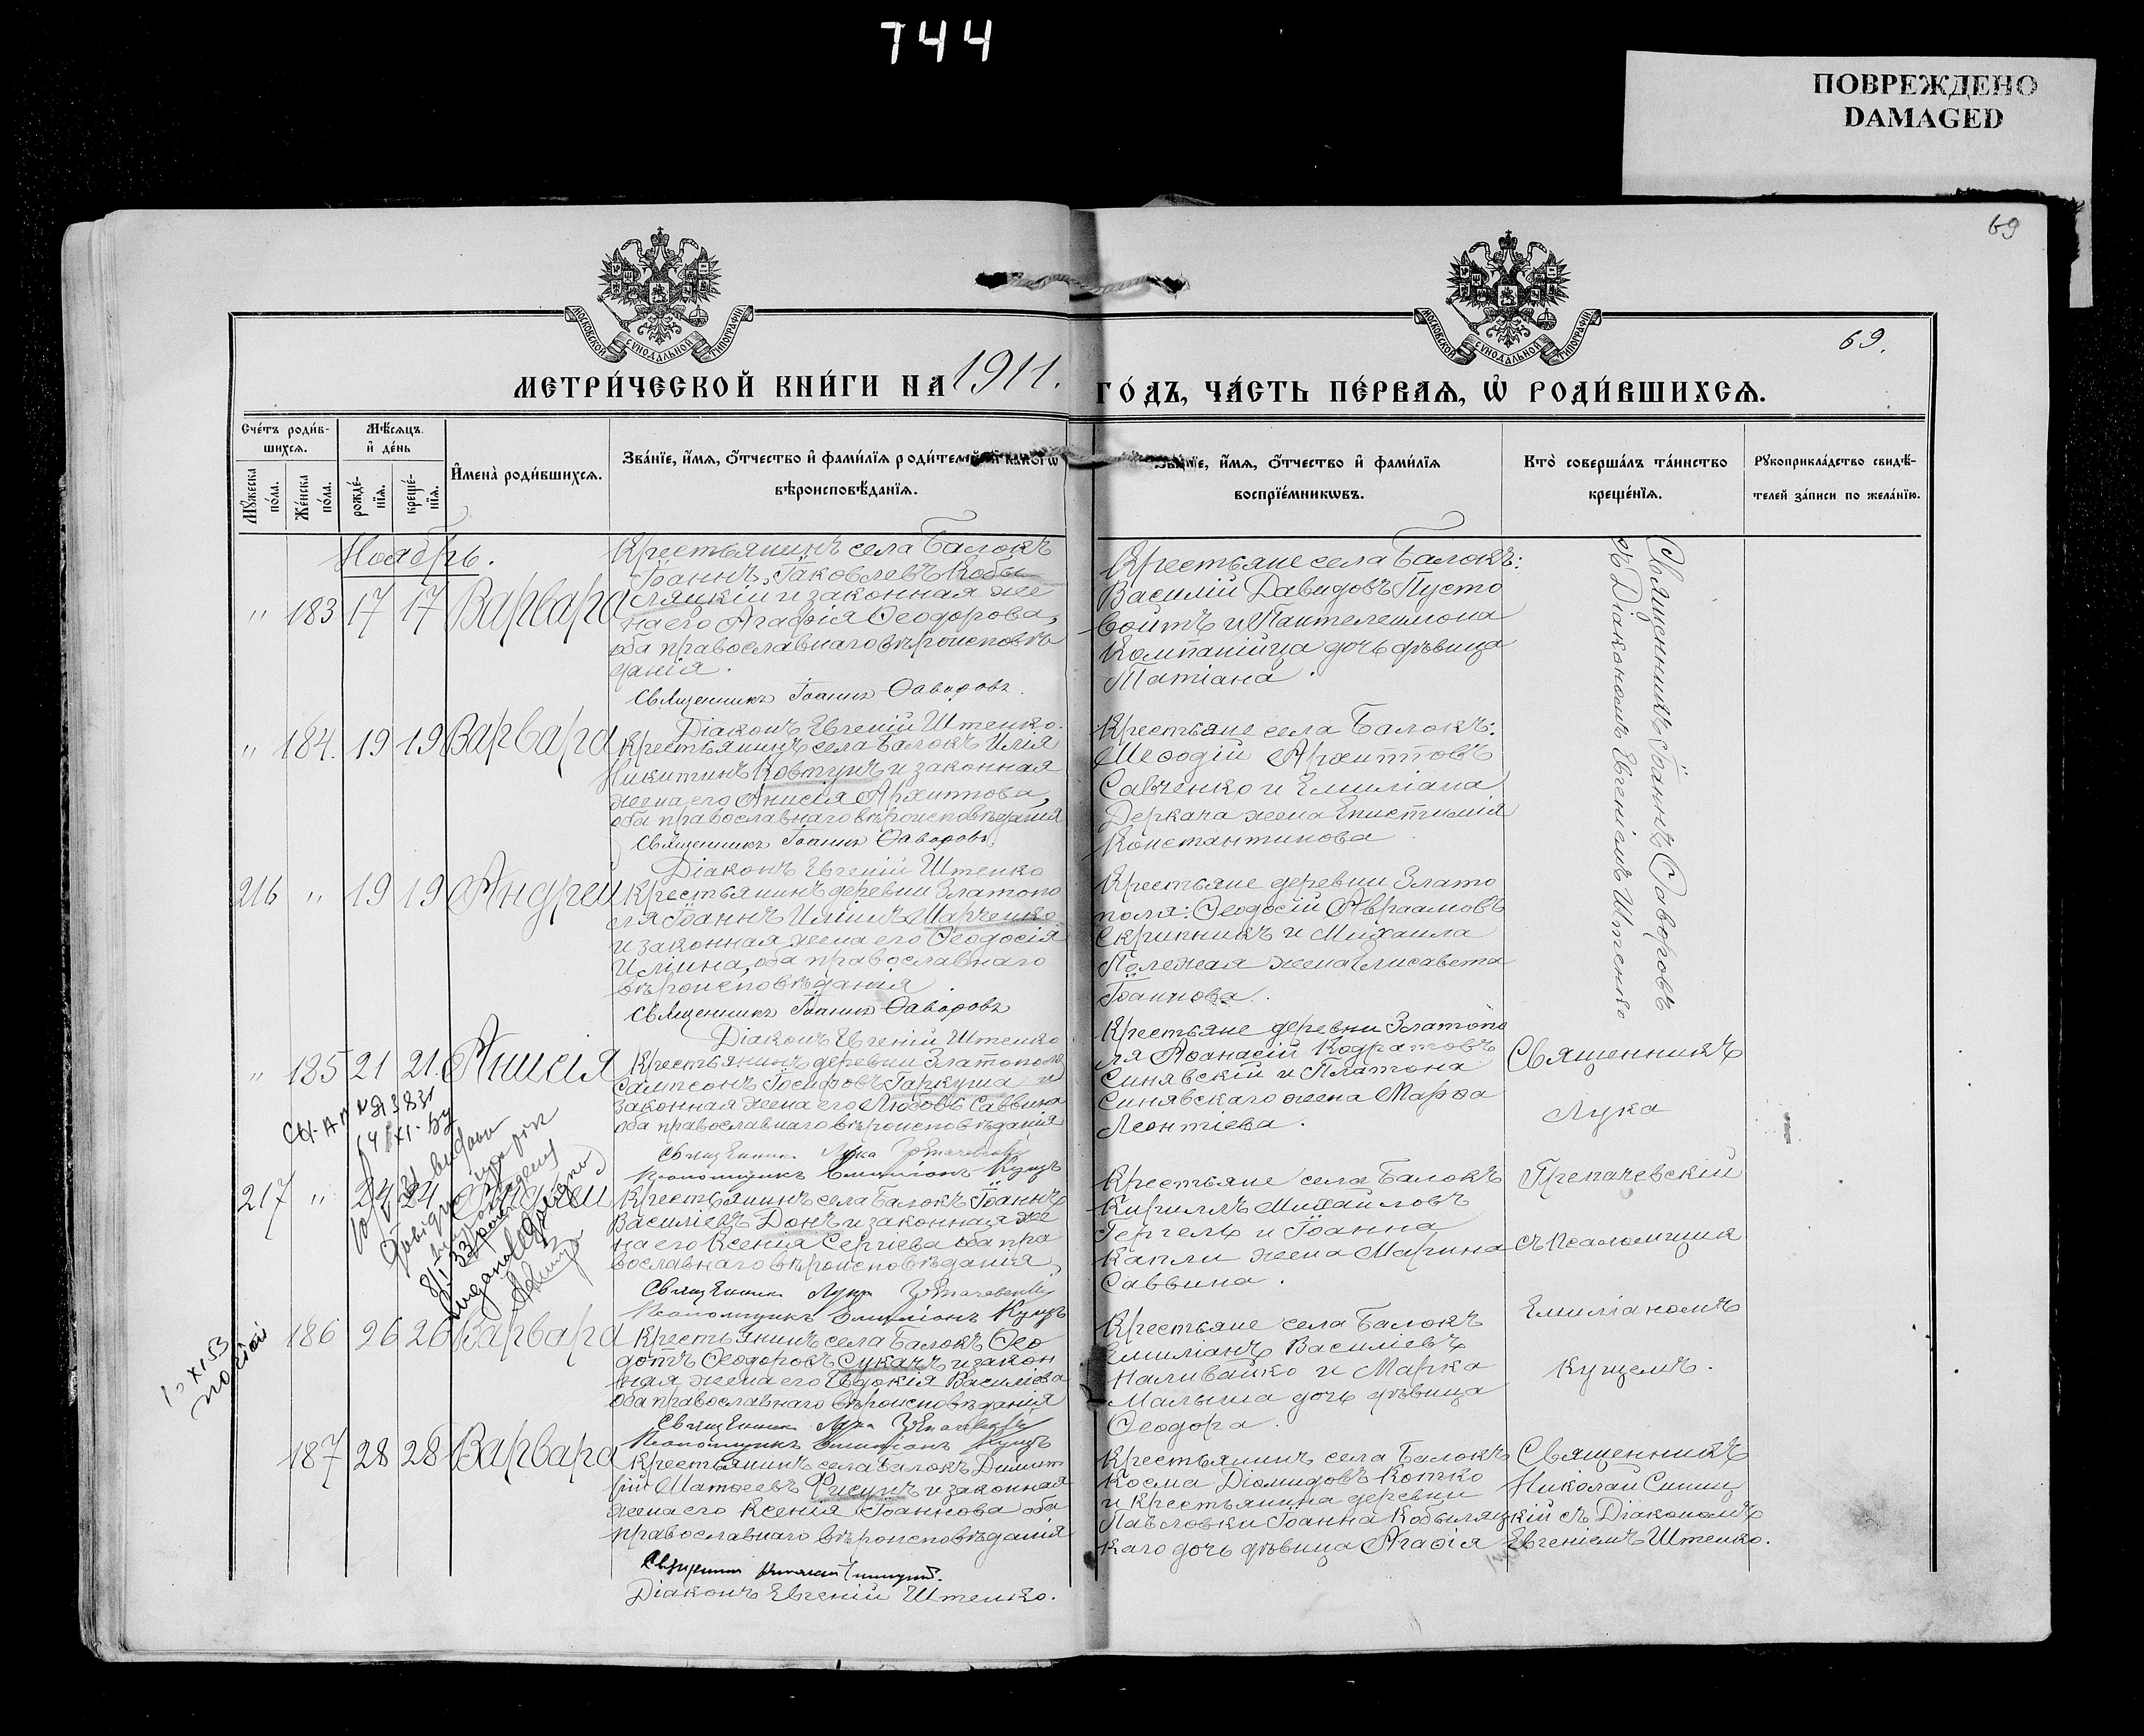 744
ПОВРЕЖДЕНО
DAMAGED
69
МОСКОВСКОЙ СѴНОДАЛЬНОЙ ТИПОГРАФІИ
МОСКОВСКОЙ СѴНОДАЛЬНОЙ ТИПОГРАФІИ
69.
МЕТРИ́ЧЕСКОЙ КНИ́ГИ НА 1911. ГО́ДЪ, ЧА́СТЬ ПЕ́РВАѦ, Ѡ҆ РОДИ́ВШИХСѦ.
Сче́тъ роди́в-
шихсѧ.
Мꙋ́жеска по́ла.
Же́нска по́ла.
Мѣ́сѧцъ
и҆ де́нь
рожде́-
нїѧ.
креще́-
нїѧ.
И҆мена̀ роди́вшихсѧ.
Зва́нїе, и҆́мѧ, ѻ҆́тчество и҆ фами́лїѧ роди́телей и҆ како́гѡ
вѣроисповѣ́данїѧ.
Зва́нїе, и҆́мѧ, ѻ҆́тчество и҆ фами́лїѧ
воспрїе́мникѡвъ.
Кто̀ соверша́лъ та́инство
креще́нїѧ.
Рꙋкоприкла́дство свидѣ́-
телей за́писи по жела́нїю.
Ноябрь.
" 183 17 17 Варвара
Крестьянинъ села Балокъ
Іоаннъ Іаковлевъ Кобы
ляцкій и законная же
на его Агафія Ѳеодорова,
оба православнаго вѣроисповѣ
данія.
Священникъ Іоаннъ Ѳаворовъ.
Діаконъ Евгеній Штенко.
Крестьяне села Балокъ:
Василій Давидовъ Пусто
войтъ и Пантелеимона
Компанійца дочь дѣвица
Татіана.
Священникъ Іоаннъ Ѳаворовъ
съ Діакономъ Евгеніемъ Штенко
" 184. 19 19 Варвара
Крестьянинъ села Балокъ Илія
Никитинъ Ковтунъ и законная
жена его Анисія Архиппова,
оба православнаго вѣроисповѣданія
Священникъ Іоаннъ Ѳаворовъ
Діаконъ Евгеній Штенко
Крестьяне села Балокъ:
Меѳодій Архипповъ
Савченко и Емиліана
Деркача жена Епистимія
Константинова
216 " 19 19 Андрей
Крестьянинъ деревни Златопо
ля Іоаннъ Иліинъ Марченко
и законная жена его Ѳеодосія
Иліина, оба православнаго
вѣроисповѣданія.
Священникъ Іоаннъ Ѳаворовъ
Діаконъ Евгеній Штенко
Крестьяне деревни Злато
поля: Ѳеодосій Авраамовъ
Скрипникъ и Михаила
Полежая жена Елисавета
Іоаннова.
" 185 21 21. Анисія
Крестьянинъ деревни Златополя
Сампсонъ Іосифовъ Гаркуша и
законная жена его Любовь Саввина
оба православнаго вѣроисповѣданія
Священникъ Лука
Псаломщикъ Емиліанъ Куцъ
Крестьяне деревни Златопо
ля Аѳанасій Кодратовъ
Синявскій и Платона
Синявскаго жена Марѳа
Леонтіева.
Священникъ
Лука
217 " 24 24
Крестьянинъ села Балокъ Іоаннъ
Василіевъ Донъ и законная же
на его Ксенія Сергіева оба пра
вославнаго вѣроисповѣданія,
Священникъ Лука
Псаломщикъ Емиліанъ Куцъ
Крестьяне села Балокъ
Кириллъ Михайловъ
Гергель и Іоанна
Капли жена Марина
Саввина.
съ Псаломщик
Емиліаномъ
Куцемъ.
186 26 26 Варвара
Крестьянинъ села Балокъ Ѳео
дотъ Ѳеодоровъ Сукачъ и закон
ная жена его Евдокія Василіева
оба православнаго вѣроисповѣданія
Священникъ Лука
Псаломщикъ Емиліанъ Куцъ
Крестьяне села Балокъ
Емиліанъ Василіевъ
Наливайко и Марка
Малыша дочь дѣвица
Ѳеодора.
187 28 28 Варвара
Крестьянинъ села Балокъ Димит
рій Матѳеевъ Фисунъ и законная
жена его Ксенія Іоаннова оба
православнаго вѣроисповѣданія
Священникъ Николай
Діаконъ Евгеній Штенко.
Крестьянинъ села Балокъ
Косма Діомидовъ Котко
и крестьянина деревни
Павловки Іоанна Кобыляц
каго дочь дѣвица Агафія
Священникъ
Николай Синиц
кій съ Діакономъ
Евгеніемъ Штенко.